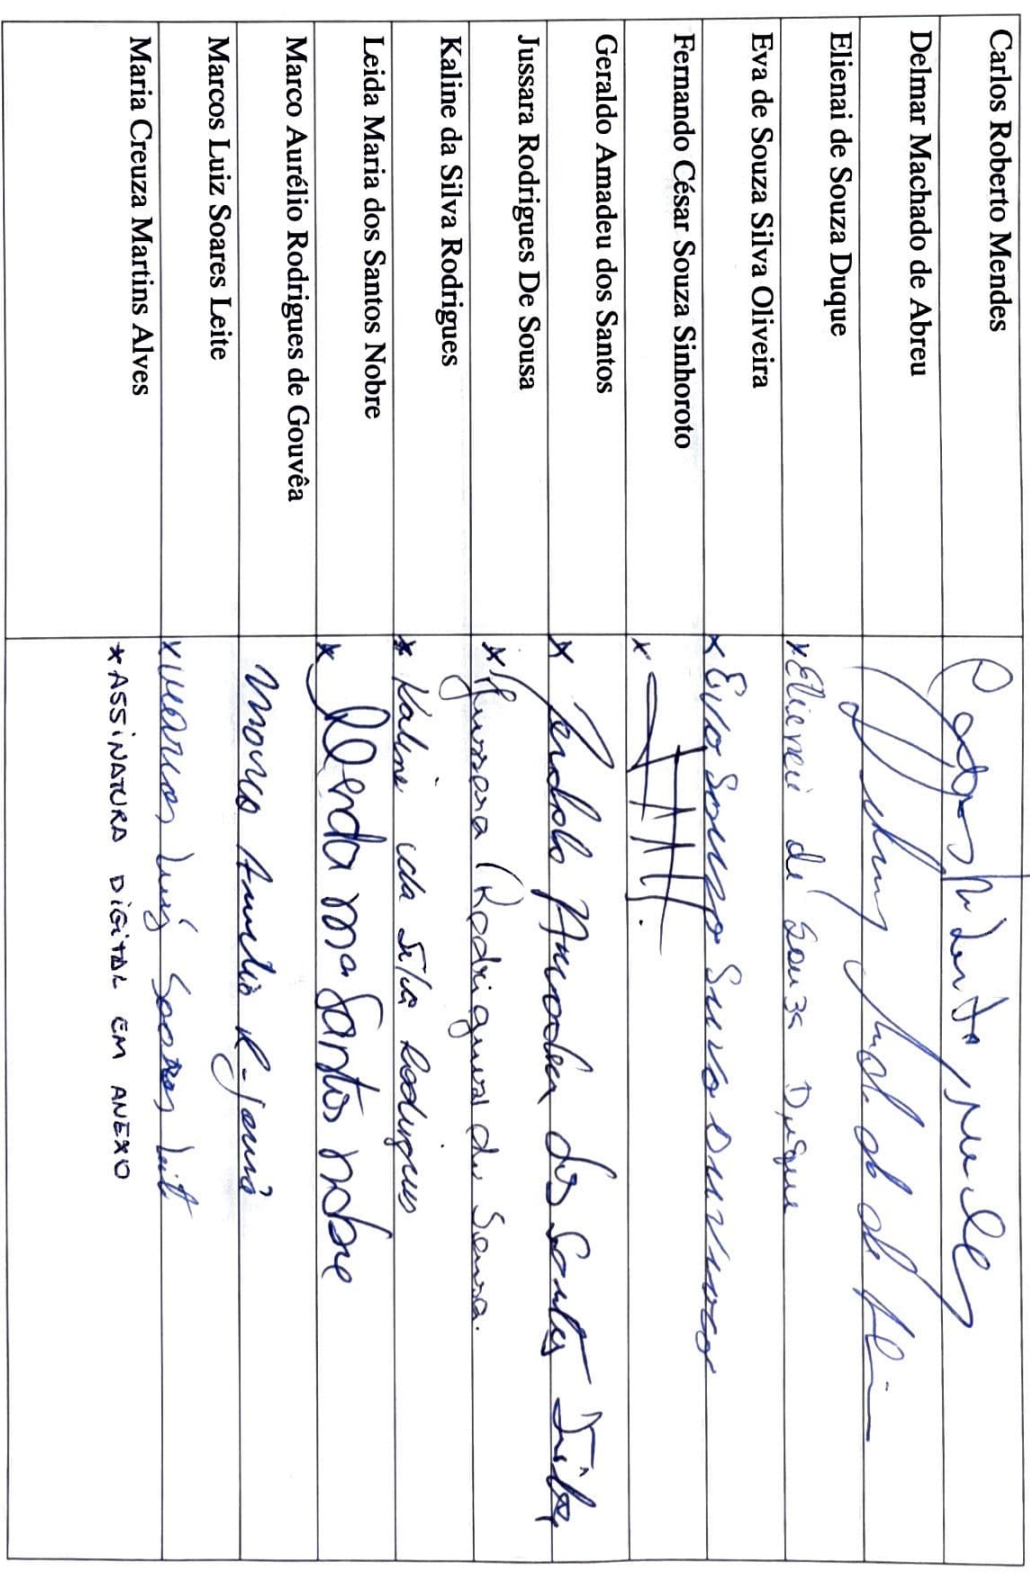 Carlos Roberto Mendes
Delmar Machado de Abreu
Elienai de Souza Duque
* Elienai de Souza Duque
Eva de Souza Silva Oliveira
Fernando César Souza Sinhoroto
*
Geraldo Amadeu dos Santos
* dos Santos
Jussara Rodrigues De Sousa
* Jussara Rodrigues de Sousa.
Kaline da Silva Rodrigues
* Kaline da Silva Rodrigues
Leida Maria dos Santos Nobre
* Leida Ma Santos nobre
Marco Aurélio Rodrigues de Gouvêa
Marco Aurelio R.
Marcos Luiz Soares Leite
* Marcos Luiz Soares Leite
Maria Creuza Martins Alves
* ASSINATURA DIGITAL EM ANEXO